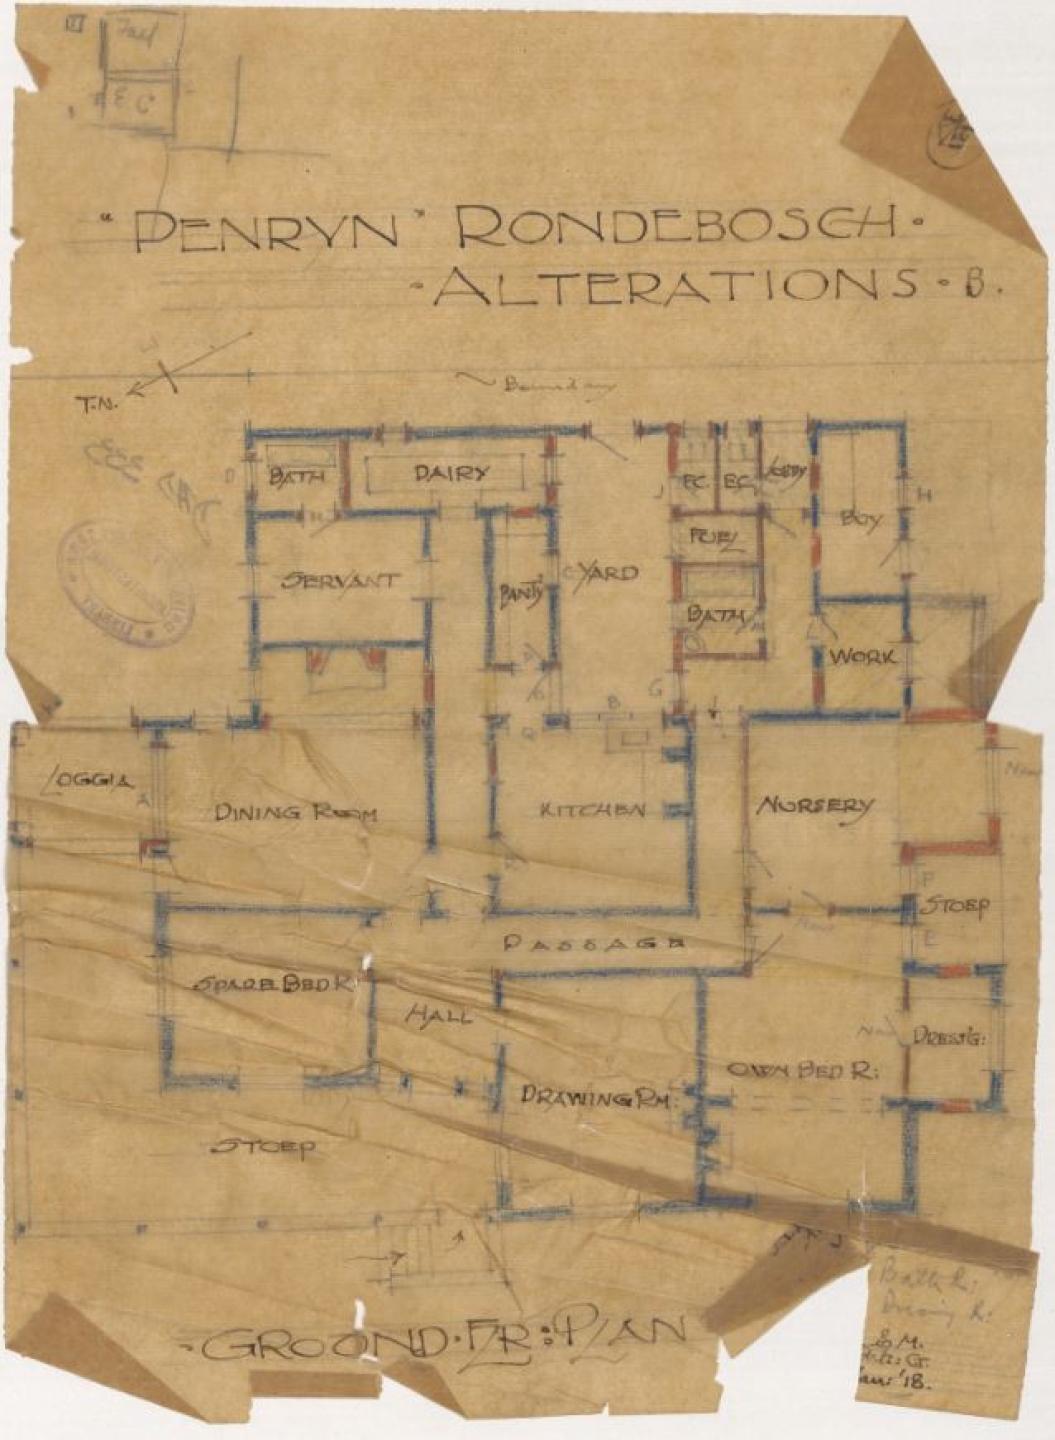 Fuel
E C
"PENRYN" RONDEBOSCH.
· ALTERATIONS · B.
T.N.
Boundary
BATH
DAIRY
EC.
EC.
LOBBY
BOY
H
D
J
FUEL
SERVANT
PANTY
C YARD
BATH
WORK
G
B
LOGGIA
A
DINING ROOM
KITCHEN
NURSERY
New
F
STOEP
E
PASSAGE
New
SPARE BED R:
HALL
New
DRESS'G:
OWN BED R:
DRAWING RM:
STOEP
· GROUND · FLR : PLAN
Bath R:
Dressing R:
& M.
Jan: '18.